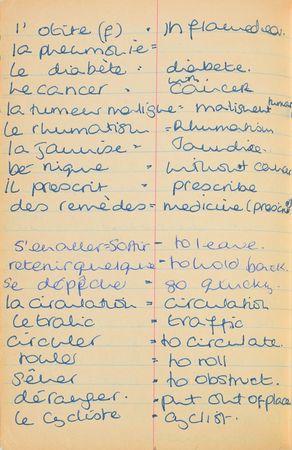 l'otite (f) = Inflamed ear.
la pneumonie =
le diabète = diabete.
le cancer = cancer
la tumeur maligne = malignent tumor
le rhumatism = Rhumatism
la jaunisse = Jaundice.
bénigne = without cancer
il prescrit = prescribe
des remèdes = medicine (prescri
s'en aller = sortir - to leave.
retenir quelque - to hold back.
se dépêche = go quickly.
la circulation = circulation
le trafic = traffic
circuler = to circulate.
rouler = to roll
gêner = to obstruct.
déranger. = put out of place
le cycliste = cyclist.